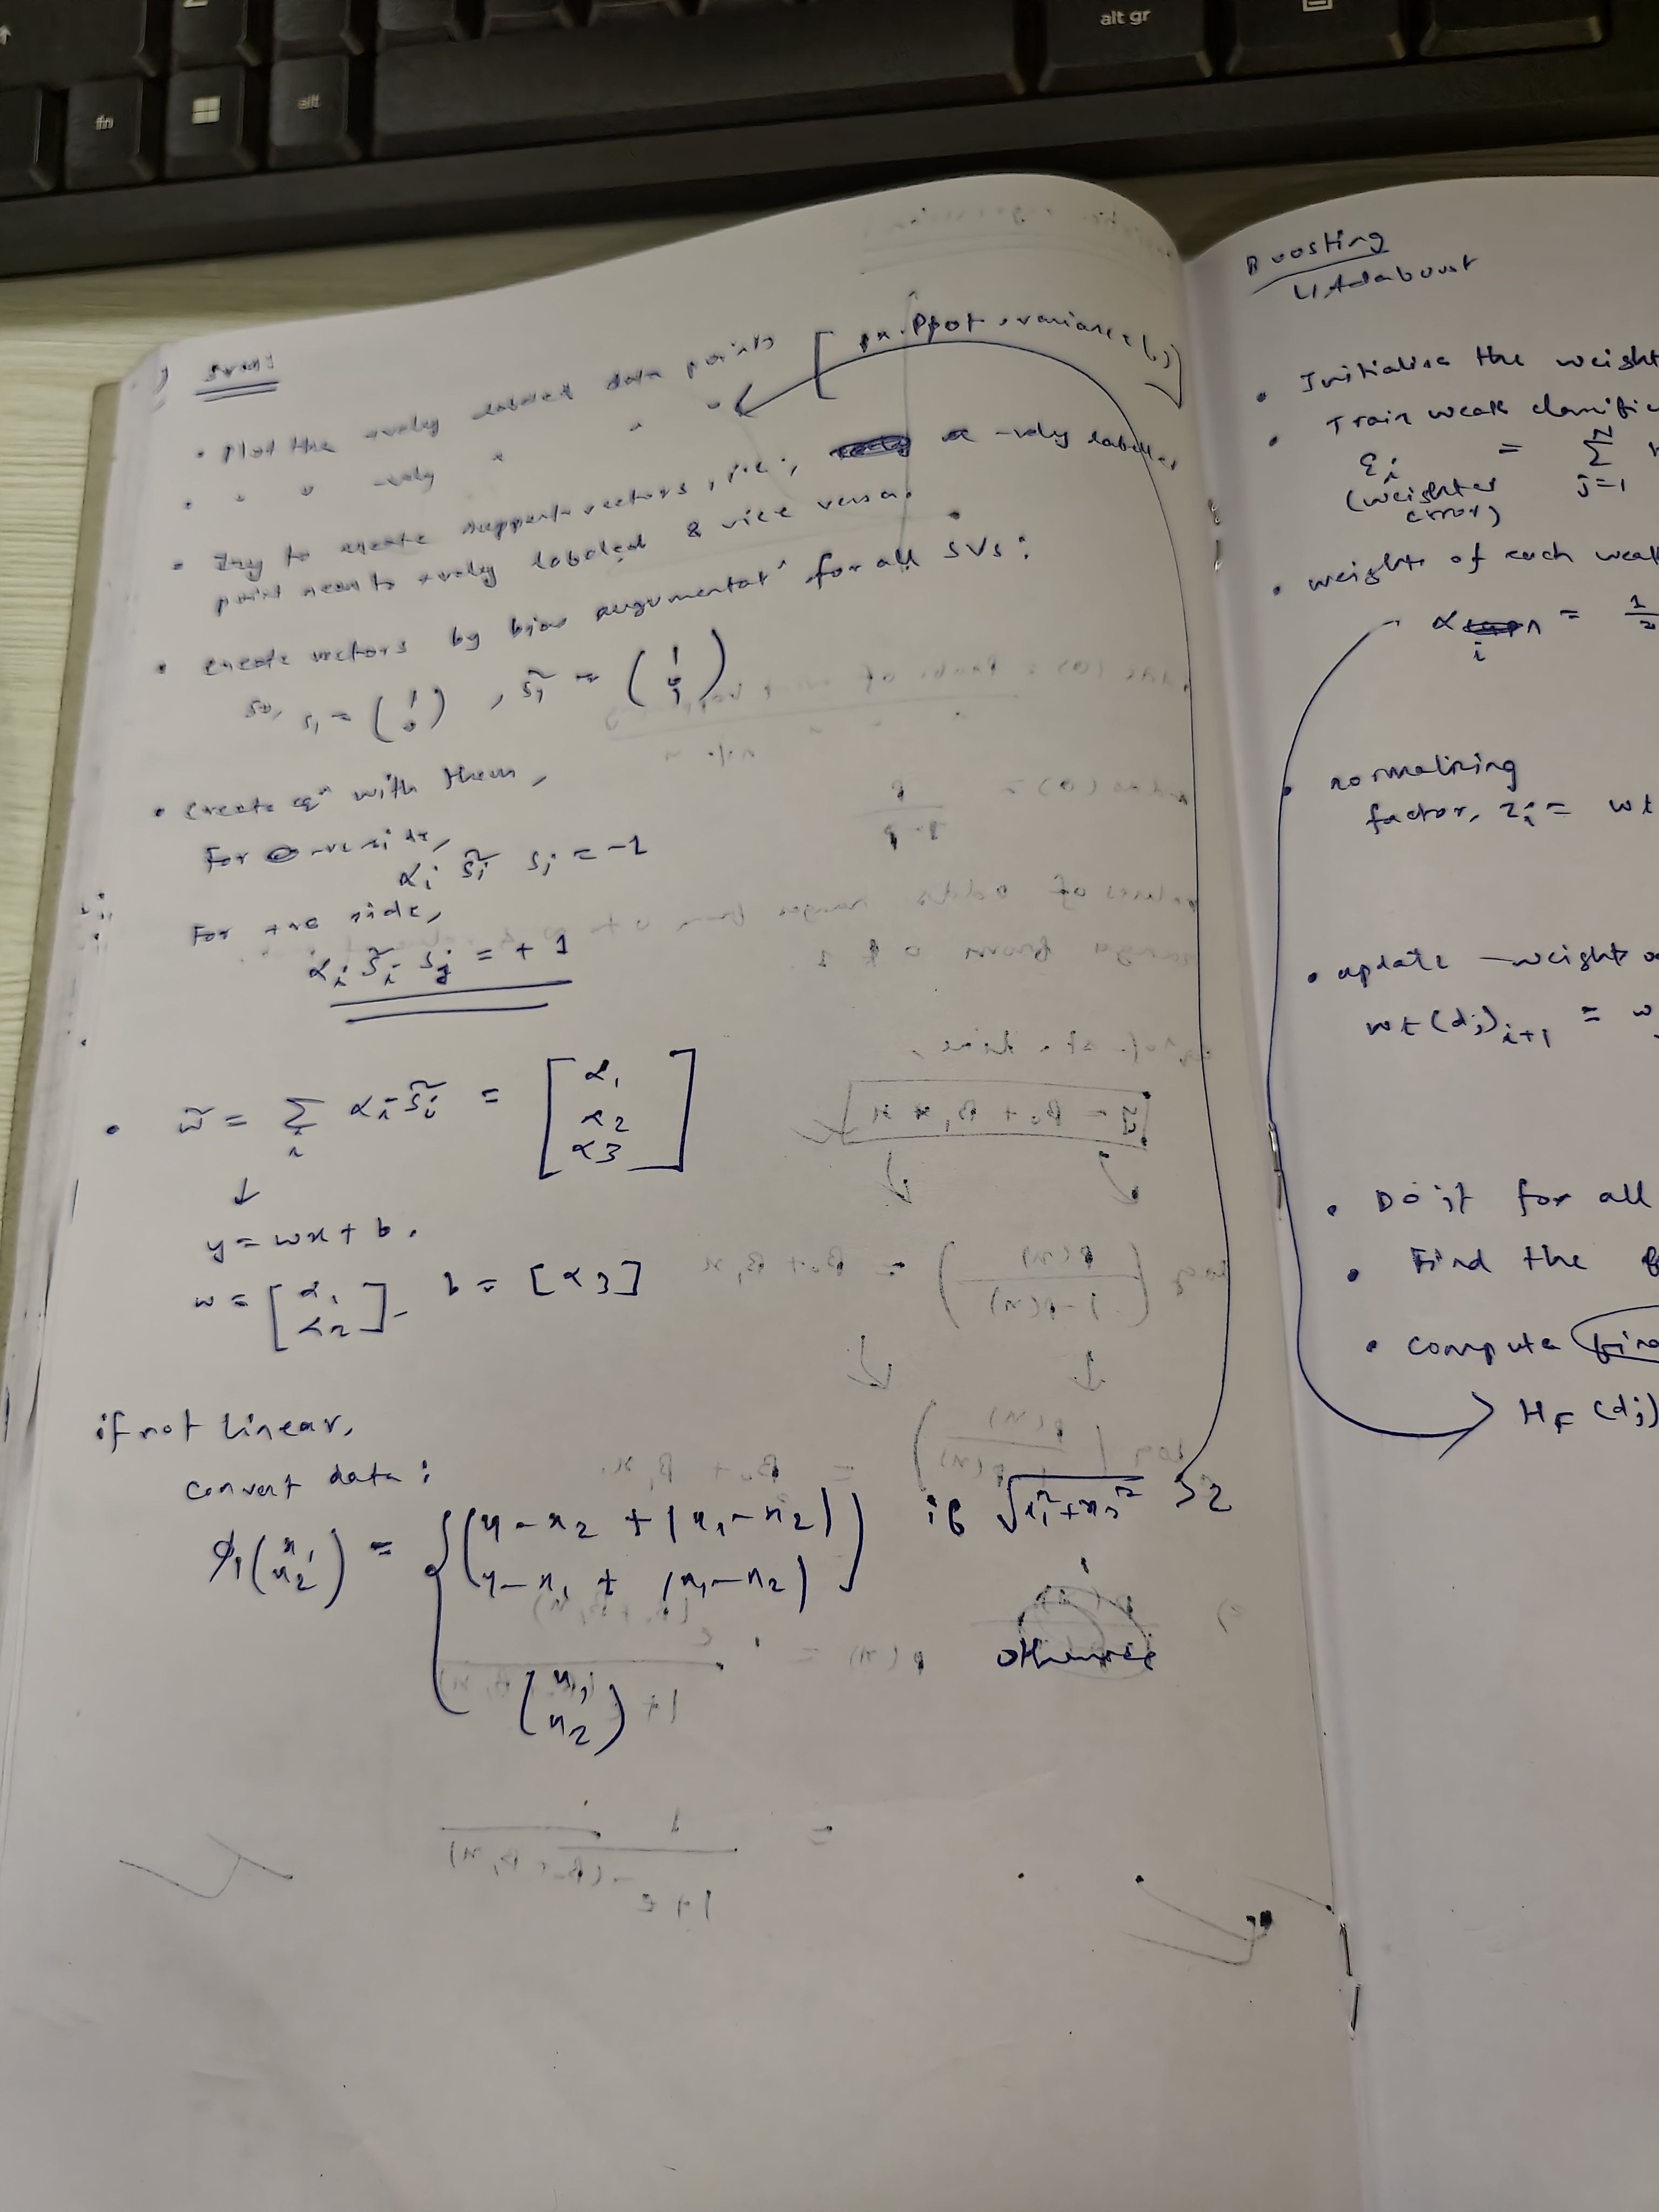 alt gr
fn
alt
SVM:
• Plot the +vely labeled data points
• " " -vely " " "
• Try to create support vectors, i.e., a -vely labelled
point near to +vely labeled & vice versa.
• create vectors by bias augumentatⁿ for all SVs:
so, s₁ = (1 0), s̃₁ = (1 0 1)
• create eqⁿ with them,
For -ve side,
αᵢ s̃ᵢ sⱼ = -1
For +ve side,
αᵢ s̃ᵢ sⱼ = +1
• w̃ = Σᵢ αᵢ s̃ᵢ = [α₁ α₂ α3]
↓
y = wx + b.
w = [α₁ α₂], b = [α3]
if not linear,
convert data:
ϕ₁(x₁ x₂) = { (4 - x₂ + |x₁ - x₂|
4 - x₁ + |x₁ - x₂|) if √(x₁² + x₂²) > 2
(x₁ x₂) otherwise
Boosting
↳ Adaboost
• Initialise the weight
• Train weak classifie
εᵢ = Σ j=1 N
(weighted
error)
• weights of each weak
αᵢ = 1/2
• normalizing
factor, Zᵢ = wt
• update weight o
wt(dⱼ)ᵢ₊₁ = w
• Do it for all
• Find the
• compute
H_F (dⱼ)